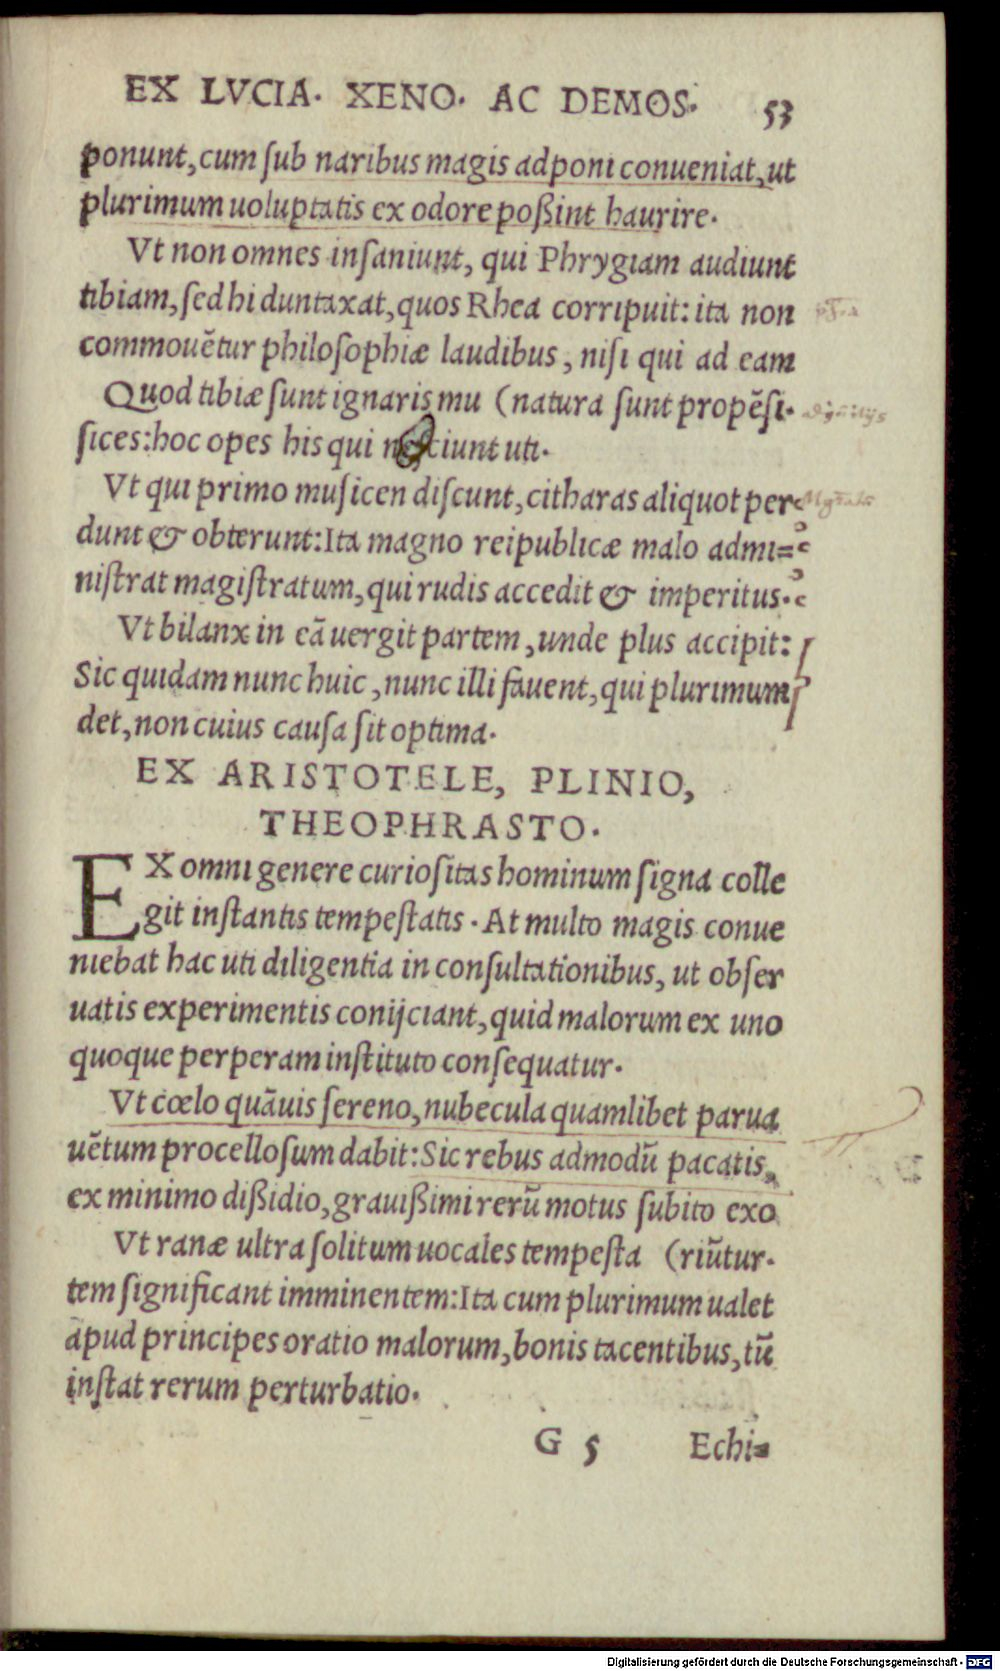 EX LVCIA. XENO. AC DEMOS. 53
ponunt, cum ſub naribus magis adponi conueniat, ut
plurimum uoluptatis ex odore poßint haurire.
Vt non omnes inſaniunt, qui Phrygiam audiunt
tibiam, ſed hi duntaxat, quos Rhea corripuit: ita non
commouẽtur philoſophiæ laudibus, niſi qui ad eam
Quod tibiæ ſunt ignaris mu (natura ſunt propẽſi.
ſices: hoc opes his qui neſciunt uti.
Vt qui primo muſicen diſcunt, citharas aliquot per
dunt & obterunt: Ita magno reipublicæ malo admi=
niſtrat magiſtratum, qui rudis accedit & imperitus.
Vt bilanx in eã uergit partem, unde plus accipit:
Sic quidam nunc huic, nunc illi fauent, qui plurimum
det, non cuius cauſa ſit optima.
EX ARISTOTELE, PLINIO,
THEOPHRASTO.
EX omni genere curioſitas hominum ſigna colle
git inſtantis tempeſtatis. At multo magis conue
niebat hac uti diligentia in conſultationibus, ut obſer
uatis experimentis conijciant, quid malorum ex uno
quoque perperam inſtituto conſequatur.
Vt cœlo quãuis ſereno, nubecula quamlibet parua
uẽtum procelloſum dabit: Sic rebus admodũ pacatis,
ex minimo dißidio, grauißimi rerũ motus ſubito exo
Vt ranæ ultra ſolitum uocales tempeſta (riũtur.
tem ſignificant imminentem: Ita cum plurimum ualet
apud principes oratio malorum, bonis tacentibus, tũ
inſtat rerum perturbatio.
G 5 Echi=
Digitalisierung gefördert durch die Deutsche Forschungsgemeinschaft - DFG